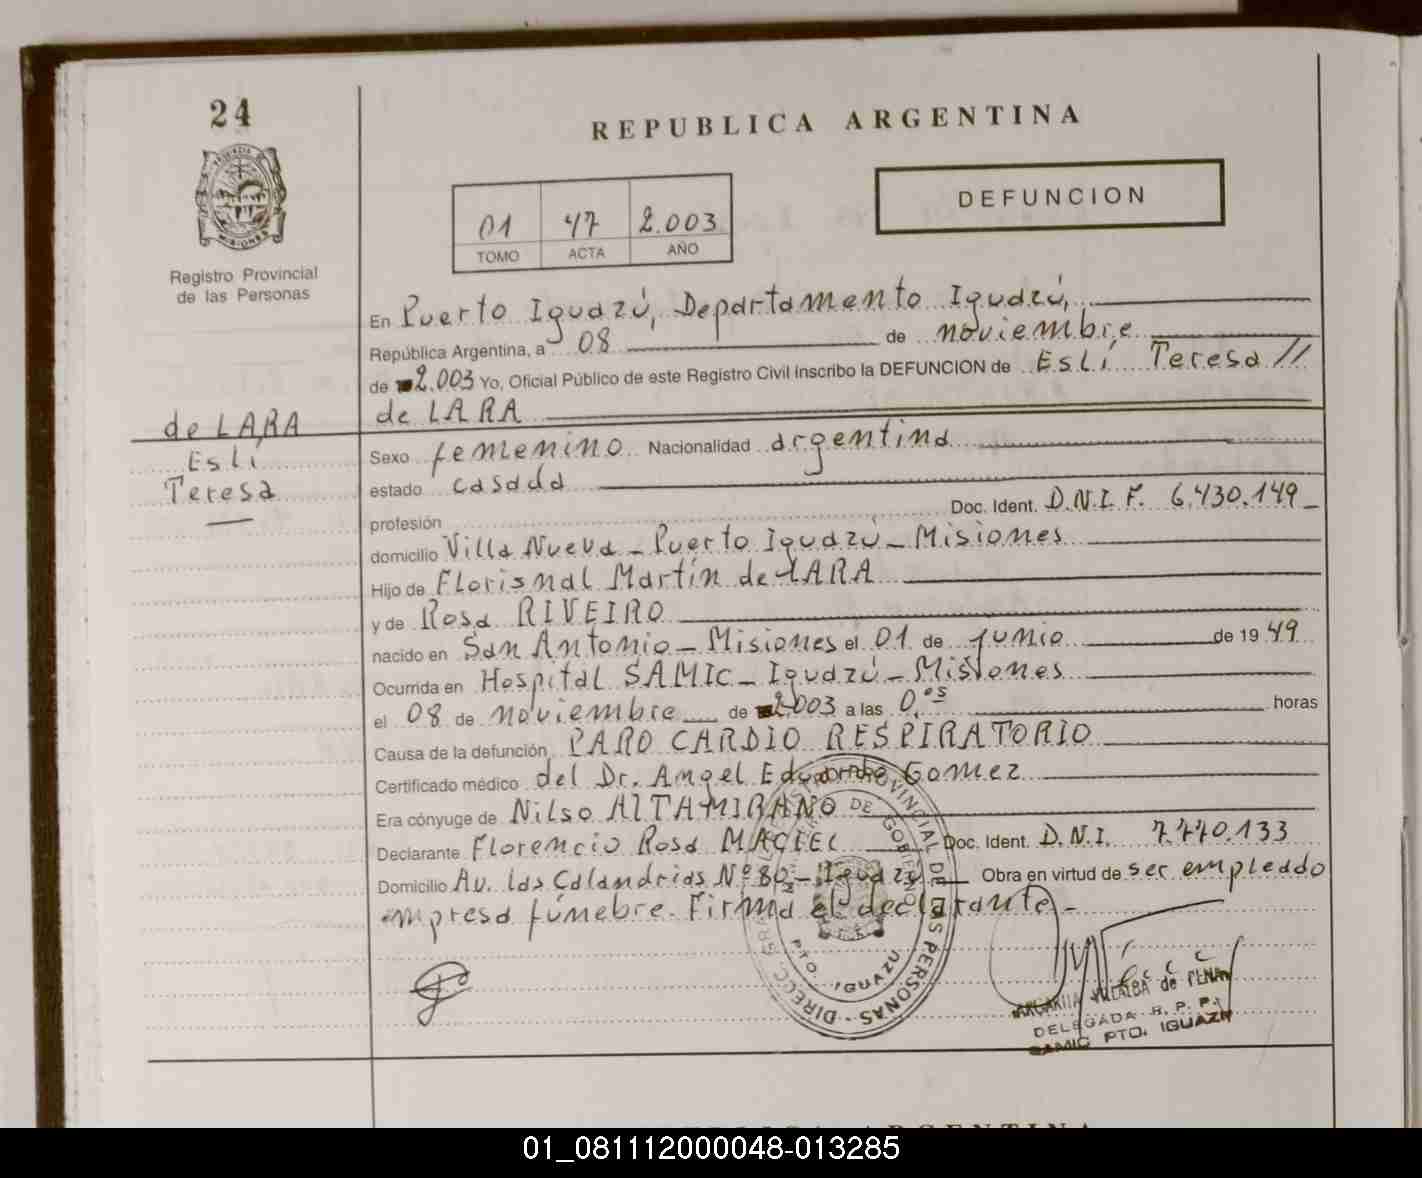 24
REPUBLICA ARGENTINA
DEFUNCION
01 47 2.003
TOMO ACTA AÑO
MISIONES
Registro Provincial
de las Personas
En Puerto Iguazú, Departamento Iguazú,
República Argentina, a 08 de noviembre
de 2.003 Yo, Oficial Público de este Registro Civil inscribo la DEFUNCION de Eslí Teresa //
de LARA
de LARA
Eslí
Teresa
Sexo femenino Nacionalidad argentina
estado casada
profesión Doc. Ident. D.N.I. F. 6.430.149
domicilio Villa Nueva - Puerto Iguazú - Misiones
Hijo de Florisnal Martín de LARA
y de Rosa RIVEIRO
nacido en San Antonio - Misiones el 01 de junio de 19 49
Ocurrida en Hospital SAMIC - Iguazú - Misiones
el 08 de noviembre de 2.003 a las 0,os horas
Causa de la defunción PARO CARDIO RESPIRATORIO
Certificado médico del Dr. Angel Eduardo Gomez
Era cónyuge de Nilso AlTAMIRANO
Declarante Florencio Rosa MACIEL Doc. Ident. D.N.I. 7.770.133
Domicilio Av. Las Calandrias Nº 80 - Iguazú Obra en virtud de ser empleado
empresa fúnebre. Firma el declarante -
DE GOBIERNO
PROVINCIAL DE LAS PERSONAS - DIRECC. GRAL.
PTO. IGUAZU
VILLALBA de PENA
DELEGADA R. P. P.
SAMIC PTO. IGUAZU
REPUBLICA ARGENTINA
01_081112000048-013285